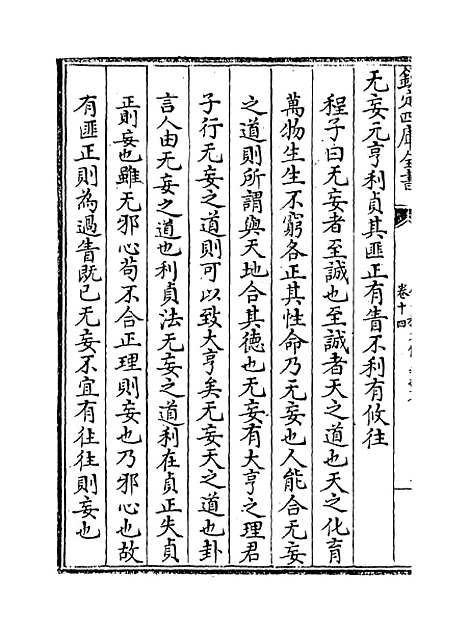 欽定四庫全書
卷十四
无妄元亨利貞其匪正有眚不利有攸往
程子曰无妄者至誠也至誠者天之道也天之化育
萬物生生不窮各正其性命乃无妄也人能合无妄
之道則所謂與天地合其德也无妄有大亨之理君
子行无妄之道則可以致大亨矣无妄天之道也卦
言人由无妄之道也利貞法无妄之道利在貞正失貞
正則妄也雖无邪心苟不合正理則妄也乃邪心也故
有匪正則為過眚既已无妄不宜有往往則妄也